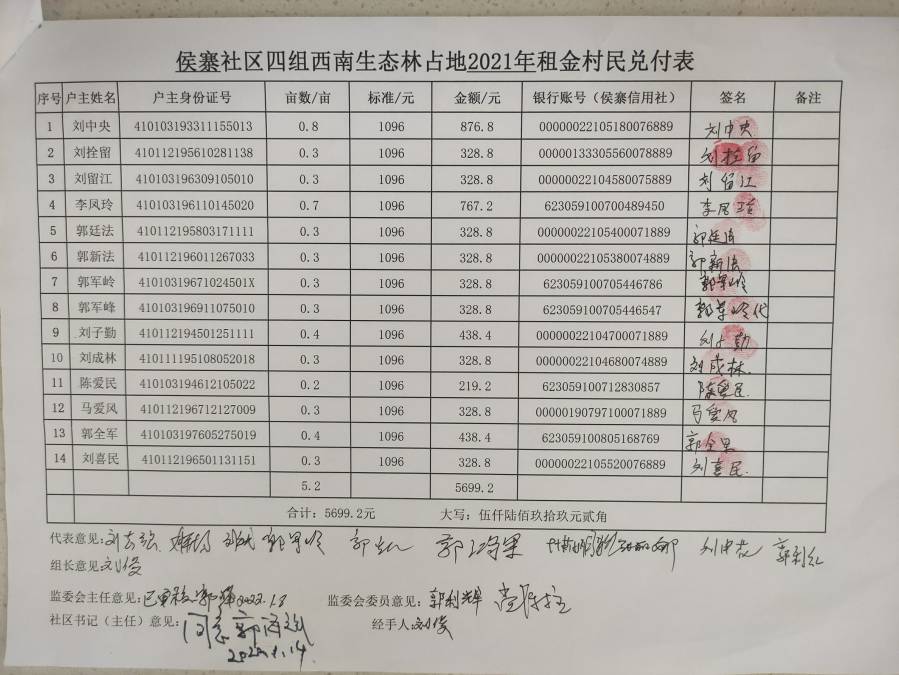 侯寨社区四组西南生态林占地2021年租金村民兑付表
序号 户主姓名 户主身份证号 亩数/亩 标准/元 金额/元 银行账号（侯寨信用社） 签名 备注
1 刘中央 410103193311155013 0.8 1096 876.8 00000022105180076889 刘中央
2 刘拴留 410112195610281138 0.3 1096 328.8 00000133305560078889 刘拴留
3 刘留江 410103196309105010 0.3 1096 328.8 00000022104580075889 刘留江
4 李凤玲 410103196110145020 0.7 1096 767.2 623059100700489450 李凤玲
5 郭廷法 410112195803171111 0.3 1096 328.8 00000022105400071889 郭廷法
6 郭新法 410112196011267033 0.3 1096 328.8 00000022105380074889 郭新法
7 郭军岭 41010319671024501X 0.3 1096 328.8 623059100705446786 郭军岭
8 郭军峰 410103196911075010 0.3 1096 328.8 623059100705446547 郭军岭代
9 刘子勤 410112194501251111 0.4 1096 438.4 00000022104700071889 刘子勤
10 刘成林 410111195108052018 0.3 1096 328.8 00000022104680074889 刘成林
11 陈爱民 410103194612105022 0.2 1096 219.2 623059100712830857 陈爱民
12 马爱风 410112196712127009 0.3 1096 328.8 00000190797100071889 马爱风
13 郭全军 410103197605275019 0.4 1096 438.4 623059100805168769 郭全军
14 刘喜民 410112196501131151 0.3 1096 328.8 00000022105520076889 刘喜民
5.2 5699.2
合计：5699.2元 大写：伍仟陆佰玖拾玖元贰角
代表意见： 郭军岭
组长意见 刘俊
监委会主任意见：已审核 2022.1.8 监委会委员意见：郭利辉
社区书记（主任）意见：同意 经手人：刘俊